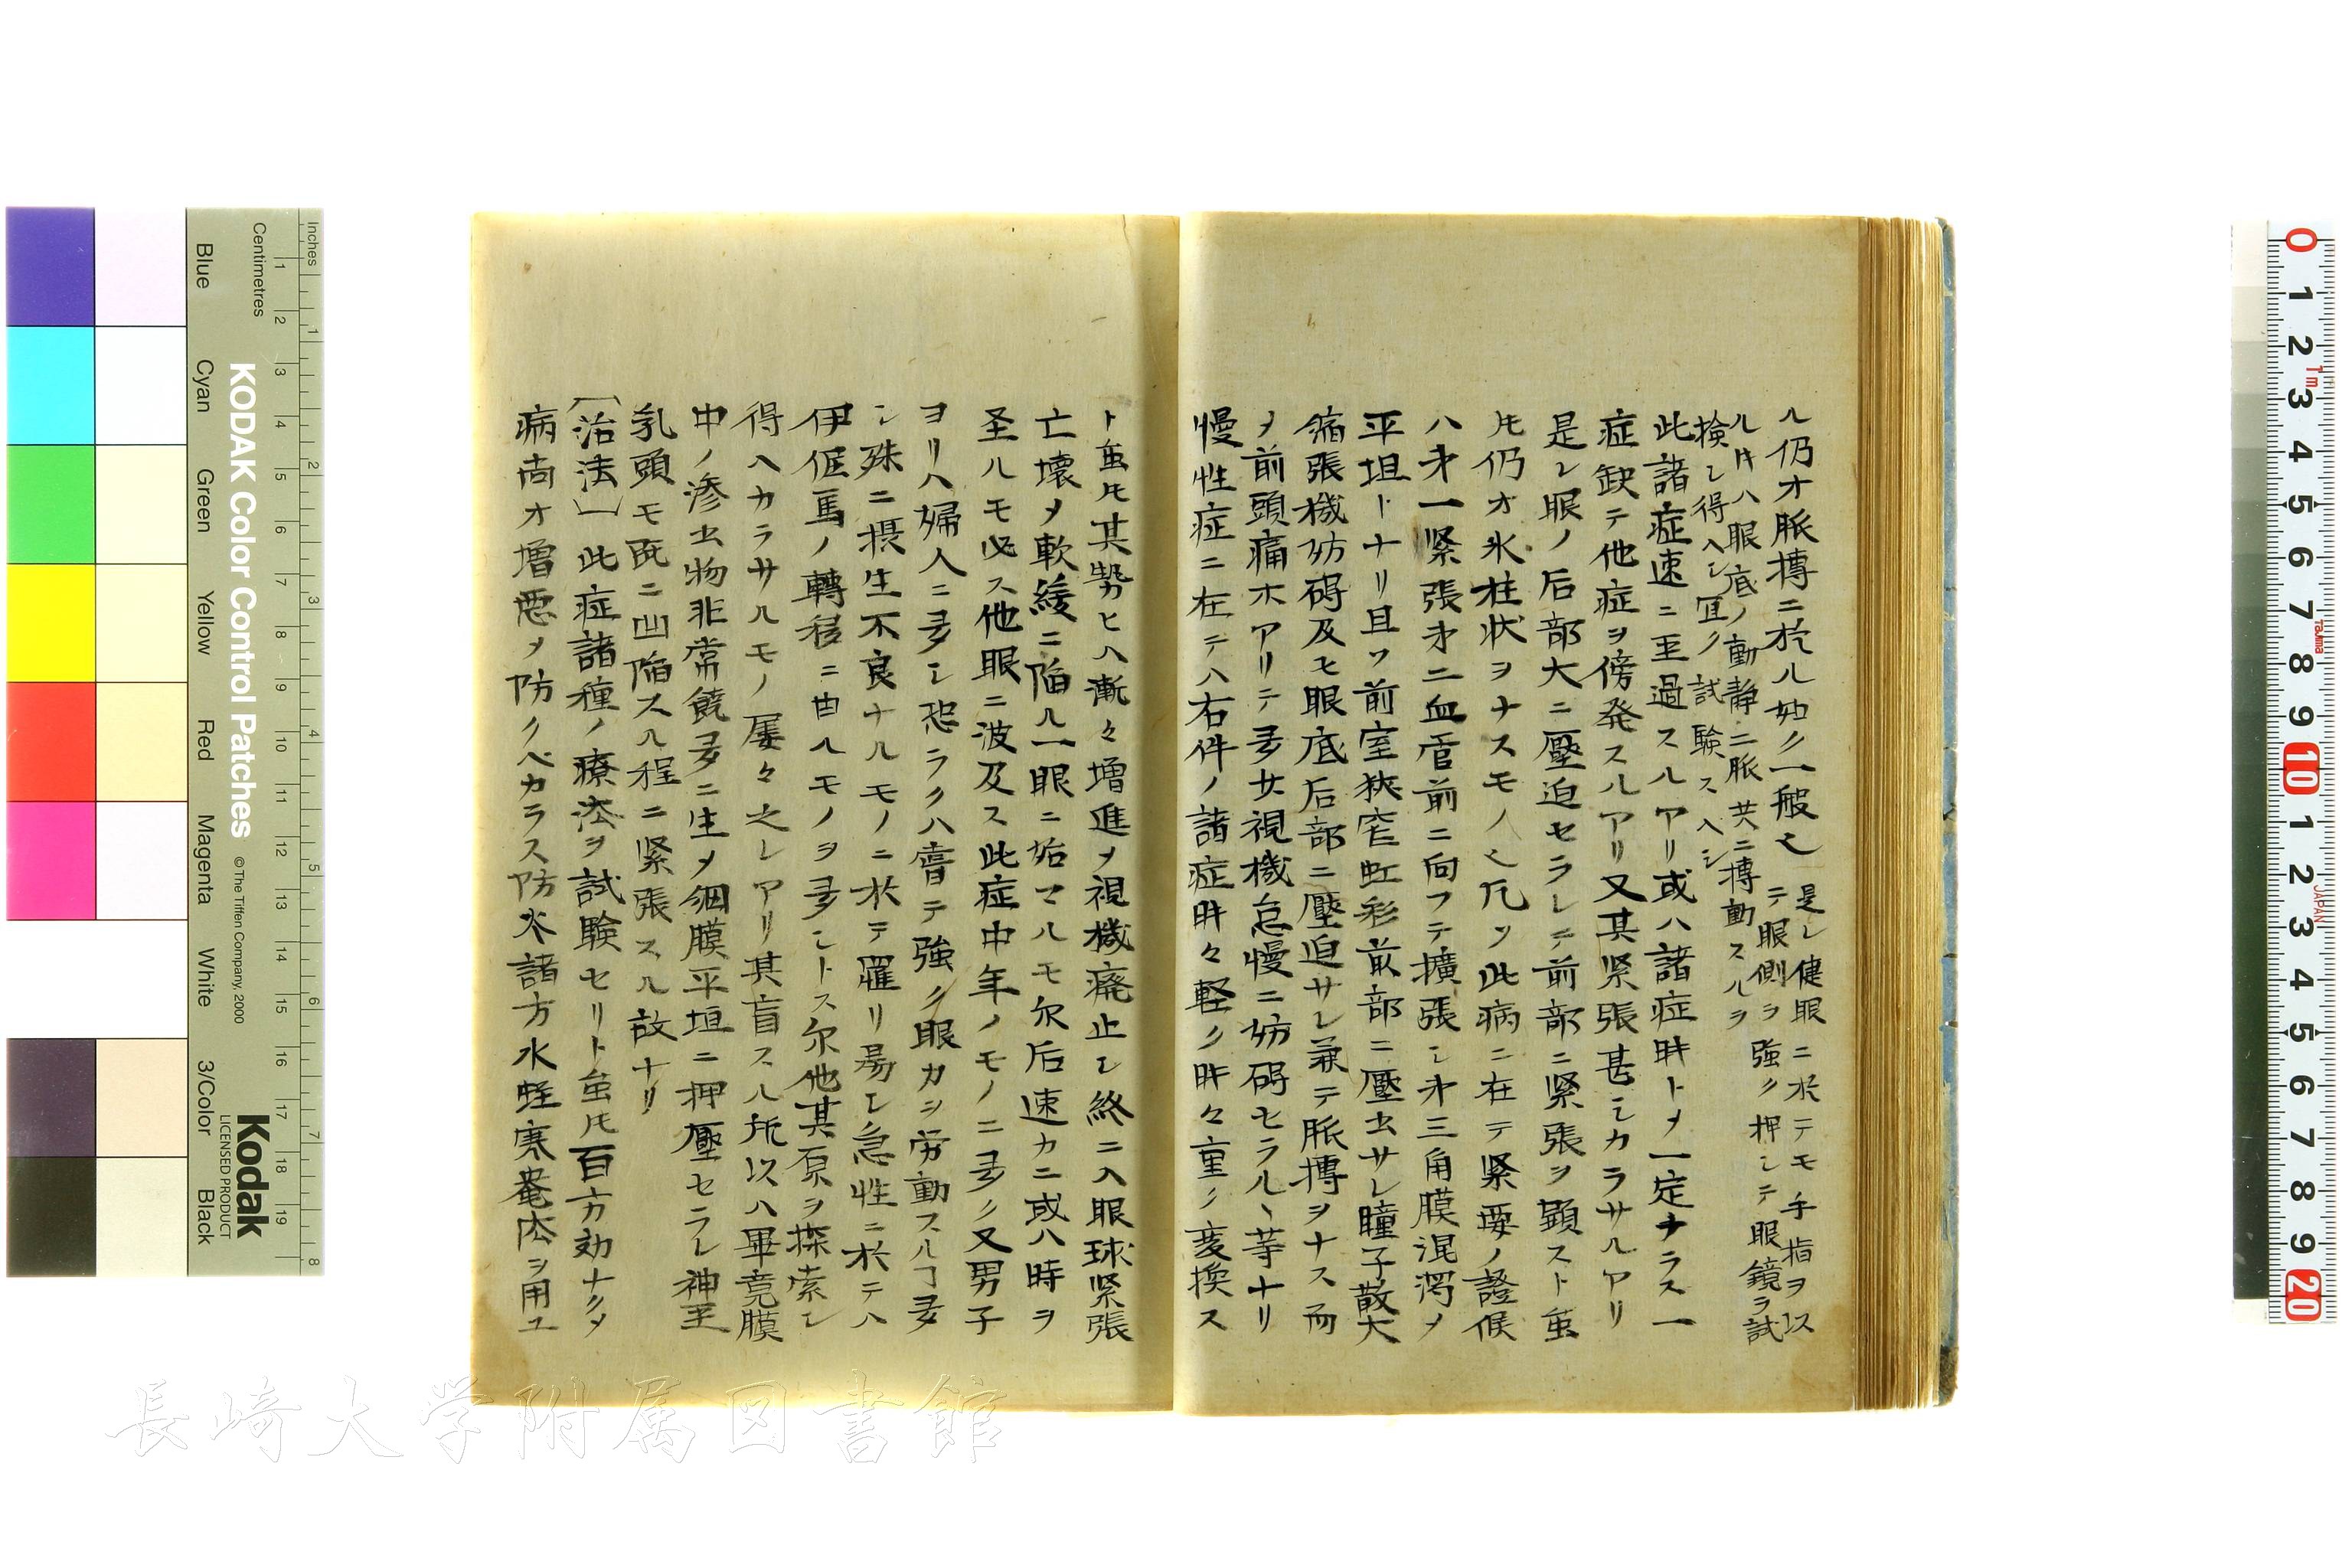 ル仍オ脈搏ニ於ル如ク一般也 是レ健眼ニ於テモ手指ヲ以
テ眼側ヲ強ク押シテ眼鏡ヲ試
ル片ハ眼底ノ動静二脈共ニ搏動スルヲ
検シ得ヘシ宜ク試験スヘシ
此諸症速ニ至過スルアリ或ハ諸症時トメ一定ナラス一
症缺テ他症ヲ傍発スルアリ又其緊張甚シカラサルアリ
是レ眼ノ后部大ニ壓迫セラレテ前部ニ緊張ヲ顕スト雖
㐧仍オ氷柱状ヲナスモノ也凡ソ此病ニ在テ緊要ノ證候
ハ才一緊張才二血管前ニ向フテ擴張シ才三角膜混濁メ
平坦トナリ且ツ前室狭窄虹彩前部ニ壓出サレ瞳子散大
縮張機妨碍及モ眼底后部ニ壓迫サレ兼テ脈搏ヲナス而
メ前頭痛ホアリテ多廿視機怠慢ニ妨碍セラル丶等ナリ
慢性症ニ在テハ右件ノ諸症時々軽ク時々重ク変換ス
ト雖㐧其勢ヒハ漸々増進メ視機廃止シ終ニハ眼球緊張
亡壊メ軟緩ニ陥ル一眼ニ始マルモ尓后速カニ或ハ時ヲ
歪ルモ必ス他眼ニ波及ス此症中年ノモノニ多ク又男子
ヨリハ婦人ニ多シ恐ラクハ嘗テ強ク眼力ヲ労動スルヿ多
シ殊ニ摂生不良ナルモノニ於テ羅リ易シ急性ニ於テハ
伊侭馬ノ轉移ニ由ルモノヲ多シトス尓他其原ヲ探索シ
得ヘカラサルモノ屡々之レアリ其盲スル所以ハ畢竟膜
中ノ滲出物非常饒多ニ生メ網膜平坦ニ押壓セラレ神至
乳頭モ既ニ凹陥スル程ニ緊張スル故ナリ
〔治法〕此症諸種ノ療法ヲ試験セリト雖㐧百方効ナクメ
病尚オ増悪メ防クベカラス防炎諸方水蛭寒菴法ヲ用ユ
Blue
Cyan
Green
Yellow
Red
Magenta
White
3/Color
Black
Centimetres
Inches
KODAK Color Control Patches
© The Tiffen Company, 2000
Kodak
LICENSED PRODUCT
長崎大学附属図書館